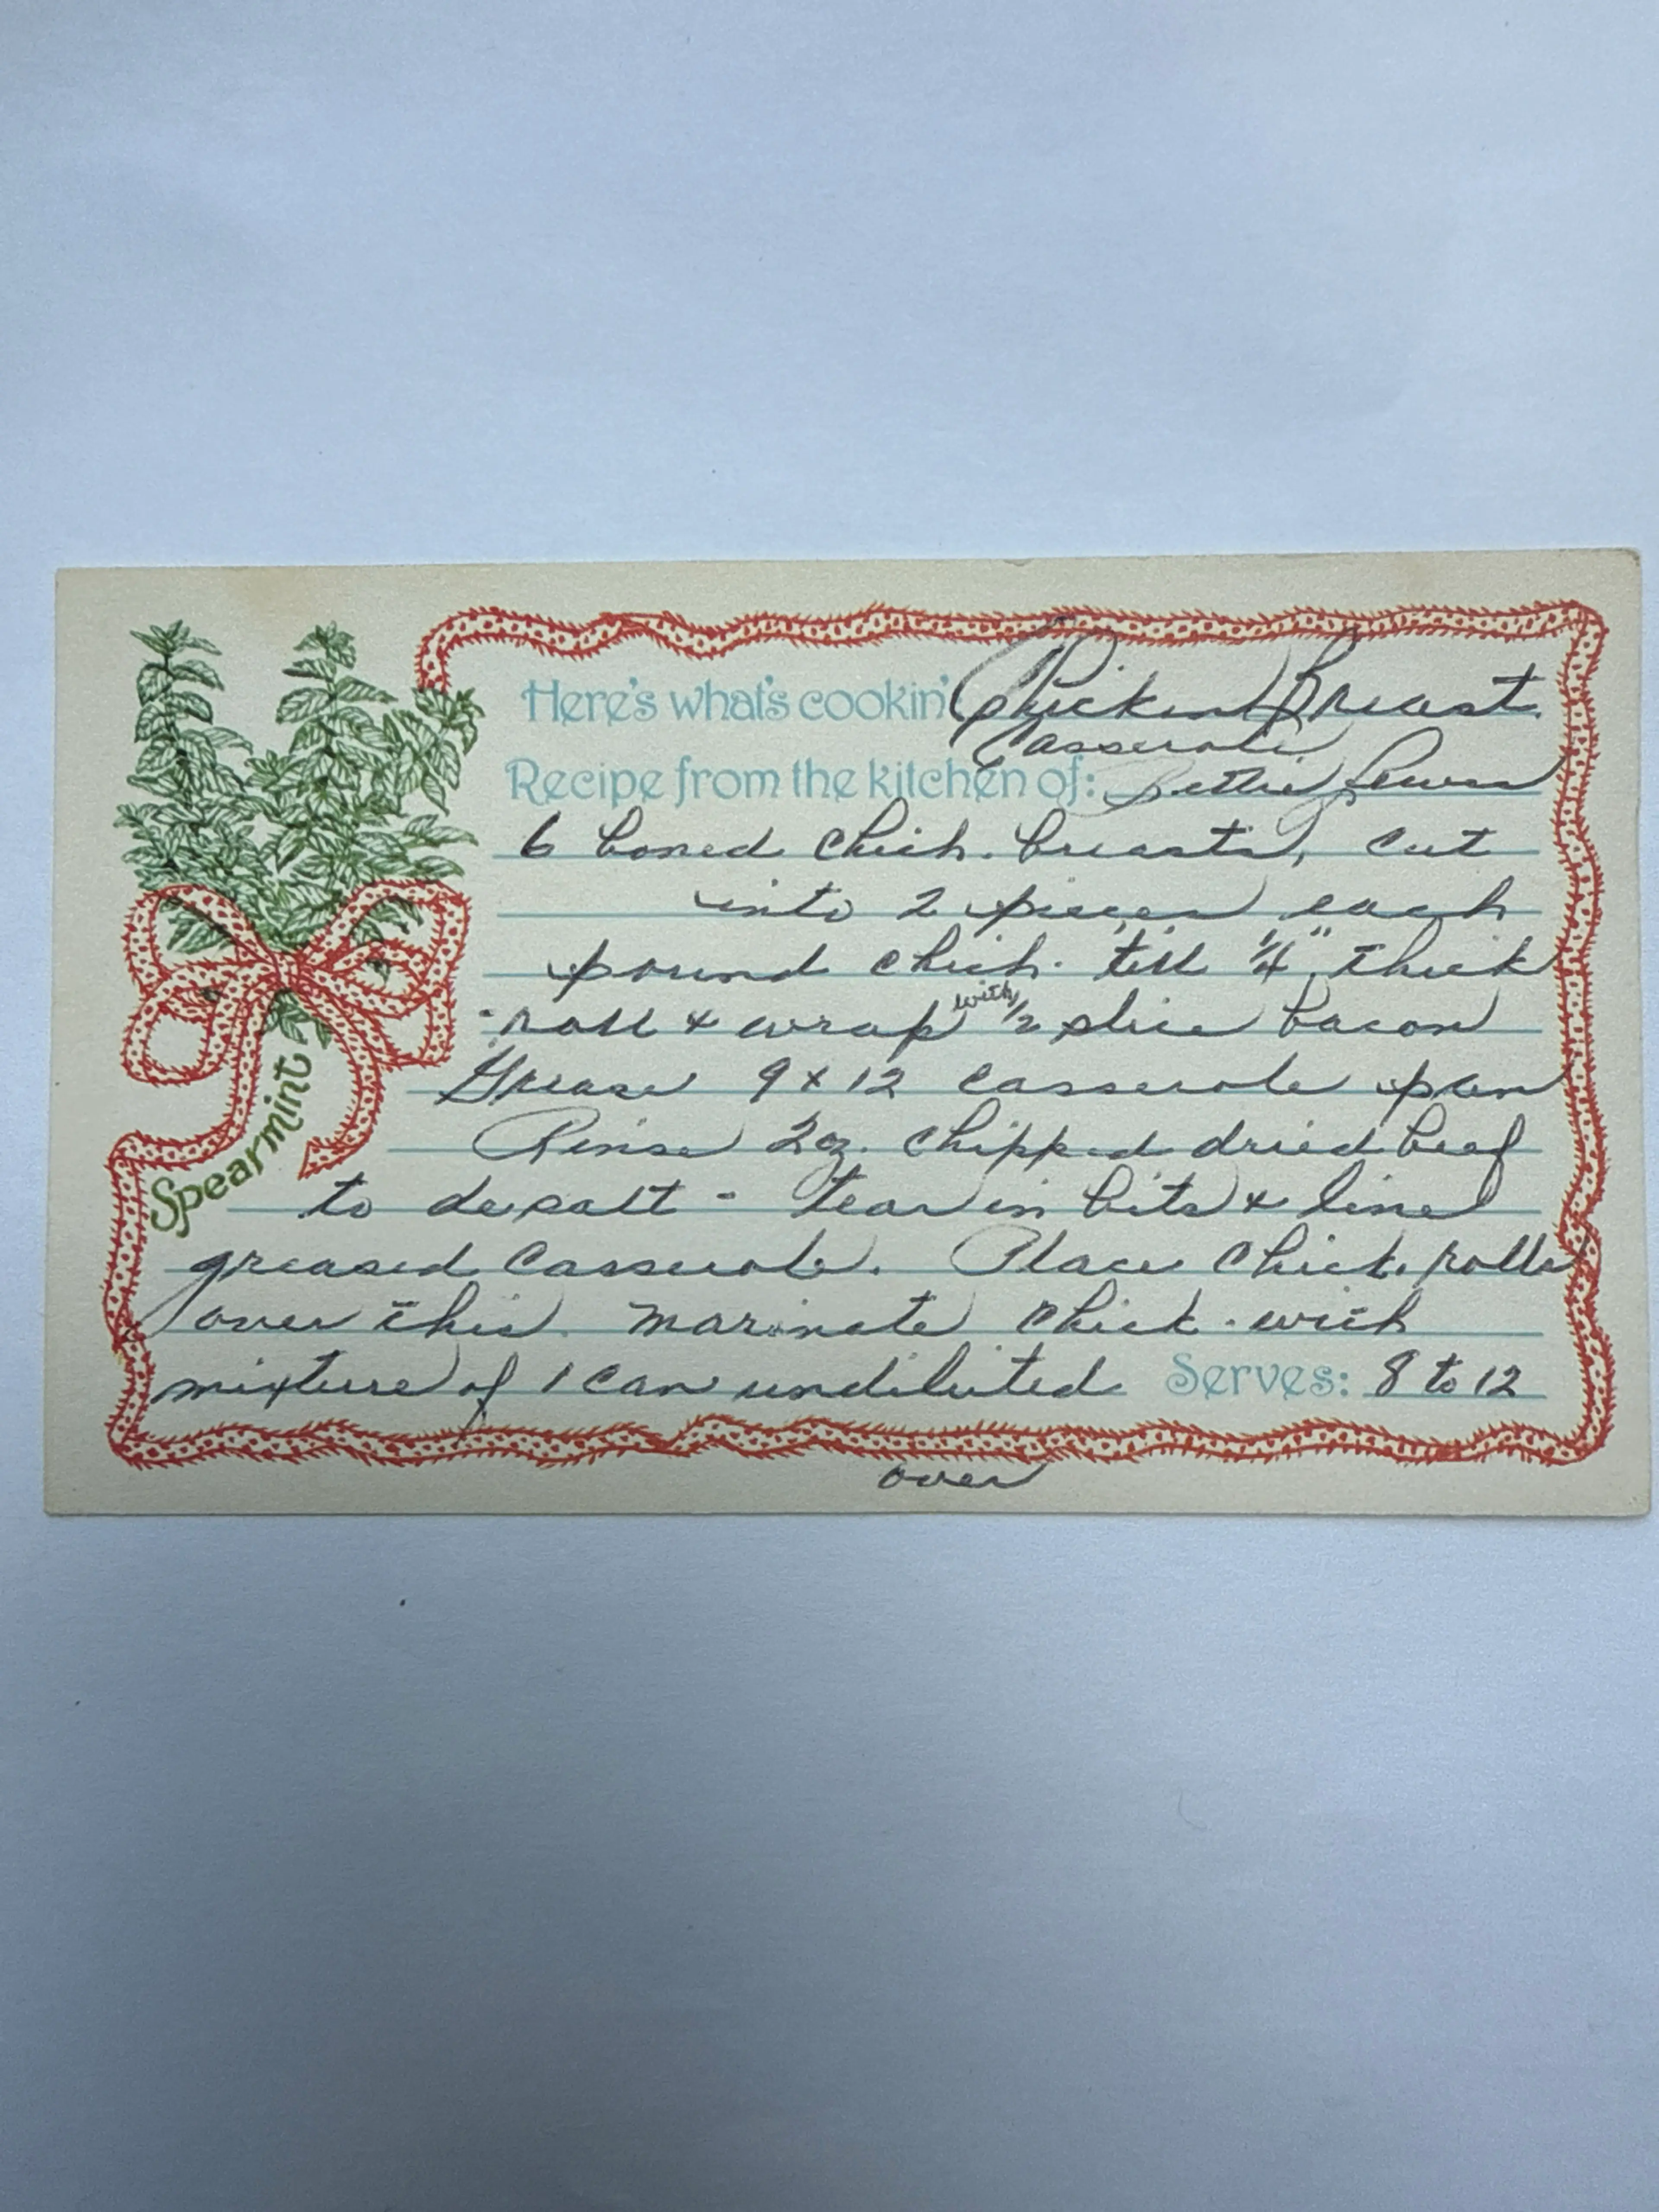 Here's what's cookin' Chicken Breast
Casserole
Recipe from the kitchen of: Bettie Lewis
6 boned chick. breasts, cut
into 2 pieces each
pound chick. till 1/4" thick
roll & wrap with 1/2 slice bacon
Grease 9 x 12 casserole pan
Rinse 2 oz. chipped dried beef
to desalt - tear in bits & line
greased casserole. Place chick. rolls
over this. Marinate chick. with
mixture of 1 can undiluted
Serves: 8 to 12
over
Spearmint